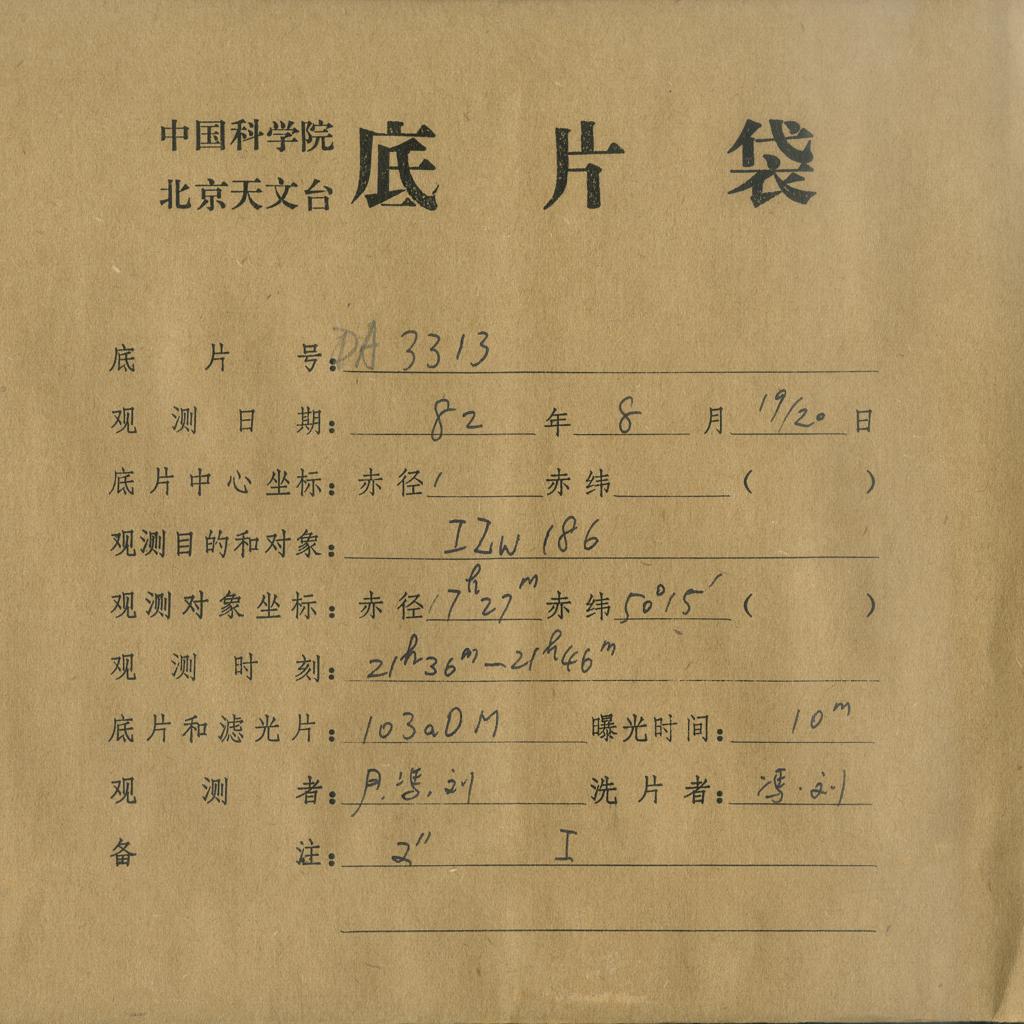 中国科学院
北京天文台
底片袋
底片号：DA 3313
观测日期：82年8月19/20日
底片中心坐标：赤径 赤纬 （ ）
观测目的和对象：IZw 186
观测对象坐标：赤径17h27m赤纬50°15′（ ）
观测时刻：21h36m—21h46m
底片和滤光片：103aD M 曝光时间：10m
观测者：月.冯.刘 洗片者：冯.刘
备注：2″ I